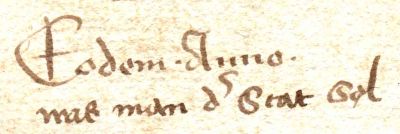 Eodem · Anno ·
was man dˢ Stat sol